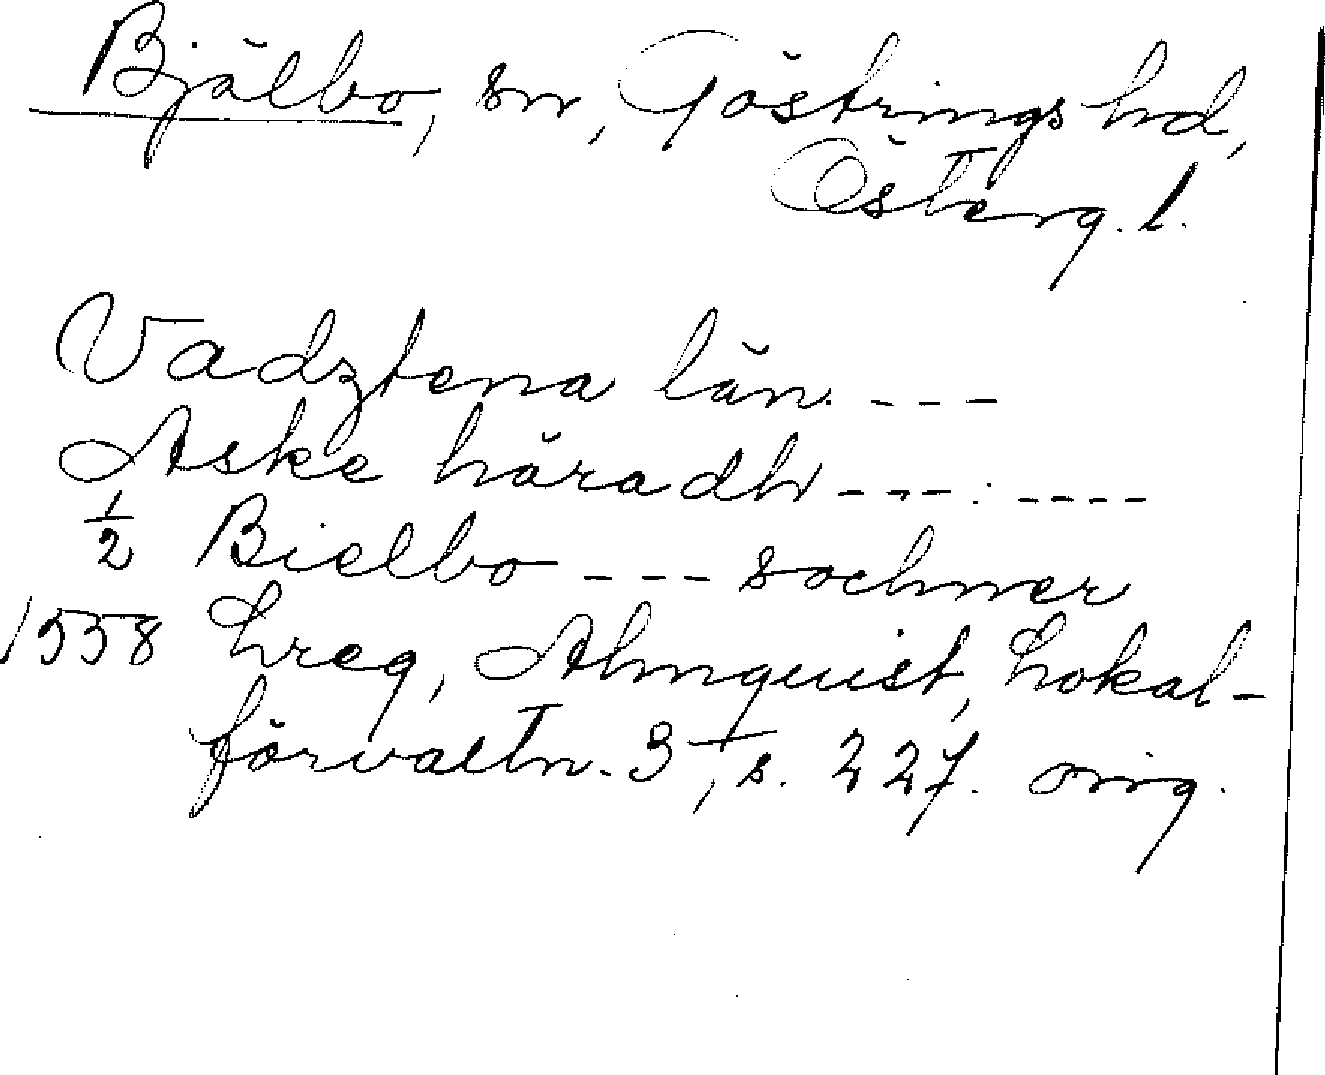 Bjälbo, sn, Göstrings hd,
Österg. l.
Vadztena län. - - -
Aske häradh - - - . - - - -
1/2 Bielbo - - - sochner
1558 Lreg, Almquist, Lokal-
förvaltn. 3, s. 227. orig.